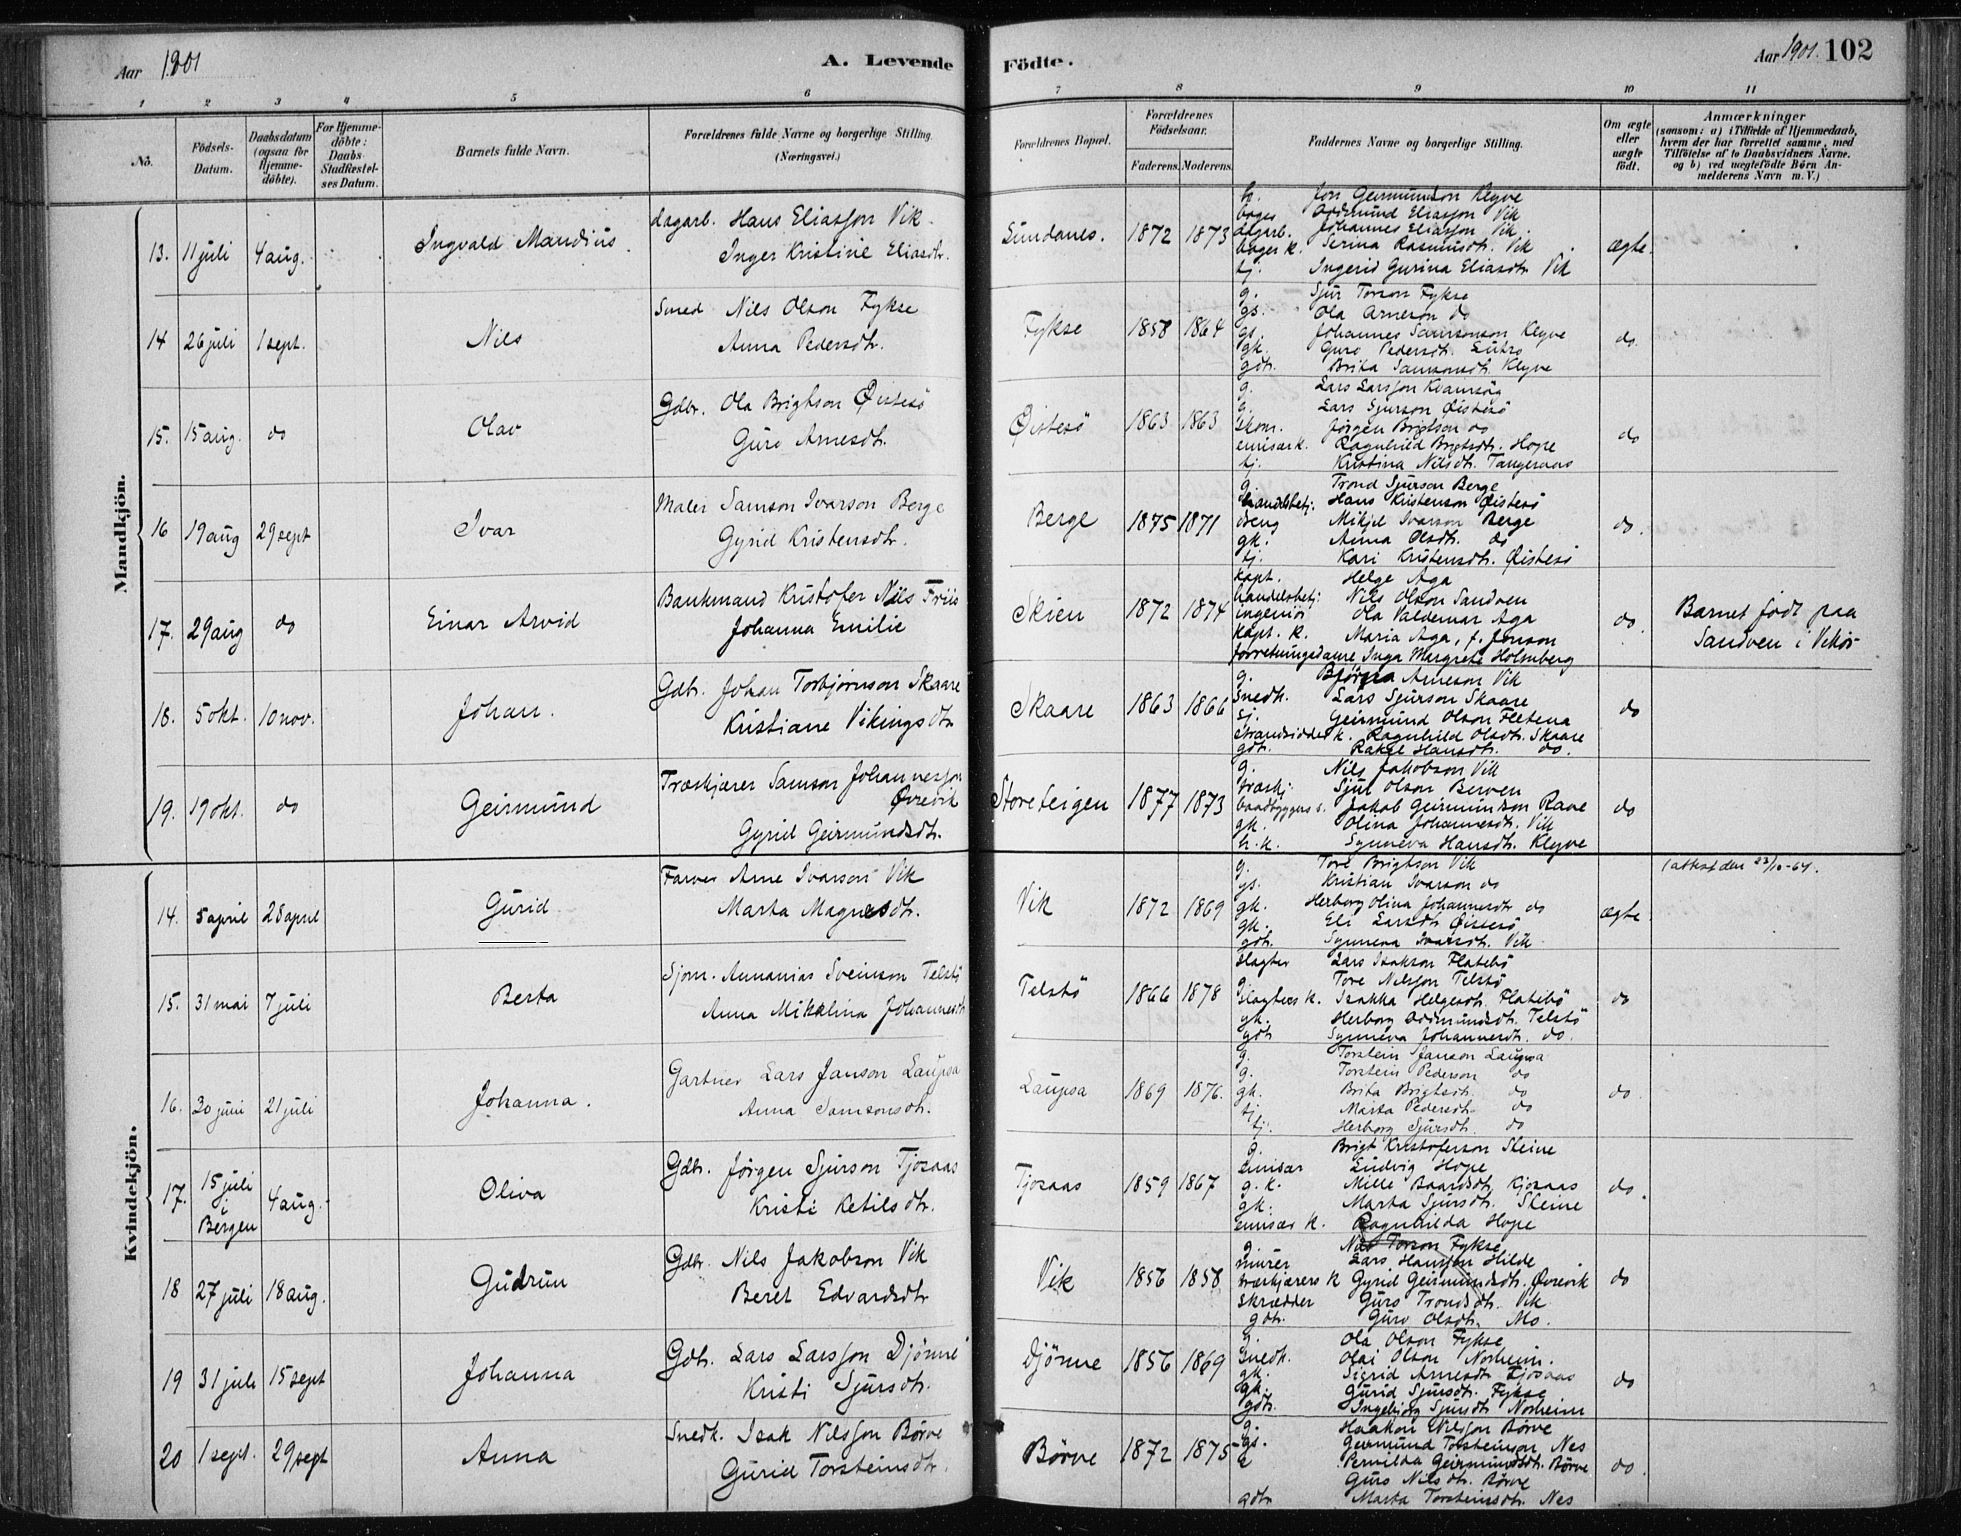 Aar 1901
A. Levende
Födte.
Aar 1901. 102
1 2 3 4 5 6 7 8 9 10 11
No.
Födsels-Datum.
Daabsdatum (ogsaa for Hjemme-döbte).
For Hjemme-döbte: Daabs Stadfæstel-ses Datum.
Barnets fulde Navn.
Forældrenes fulde Navne og borgerlige Stilling. (Næringsvei.)
Forældrenes Bopæl.
Forældrenes Födselsaar.
Faderens. Moderens.
Faddernes Navne og borgerlige Stilling.
Om ægte eller uægte födt.
Anmærkninger
(saasom: a) i Tilfælde af Hjemmedaab, hvem der har forrettet samme, med Tilföielse af to Daabsvidners Navne. og b) ved uægtefödte Börn An-melderens Navn m. V.)
Mandkjön.
13. 11 juli 4 aug. Ingvald Mandius.
dagarb. Hans Eliasson Vik
Inger Kristine Eliasdtr.
Sundanes. 1872 1873
h. Jon Geirmundson Klyve
Oddmund Eliasson Vik
dagarb. Johannes Eliasson Vik.
Serina Rasmusdtr. Vik
tj. Ingerid Gurina Eliasdtr Vik
ægte.
14 26 juli 1 sept. Nils
Smed Nils Olson Fykse
Anna Pedersdtr.
Fykse 1858 1864
g. Sjur Torson Fykse
gs. Ola Arneson do
gs. Johannes Samsonson Klyve
gk. Guro Pedersdt.
gdt. Brita Samsondt. Klyve
do.
15. 15 aug. do Olav
Gdbr. Ola Brigtson Øistesö
Guro Arnesdt.
Øistesö 1863 1863
g. Lars Larsson Kvamsøy
g. Lars Sjurson Øistesö
skom. Jørgen Brigtson do
emisærk. Ragnhild Brigtsdt. Hope
tj. Kristina Nilsdt. Tangeraas
do
16 19 aug 29 sept Ivar
Maler Samson Ivarson Berge
Gyrid Kristensdtr.
Berge 1875 1871
g. Trond Sjurson Berge
handelsbetj. Hans Kristenson Øistesö
dreng Mikjel Ivarson Berge
gk. Anna Olsdt. do
tj. Kari Kristensdt. Øistesö
do.
17. 29 aug do Einar Arvid
Bankmand Kristofer Nils Friis
Johanna Emilie
Skien 1872 1874
kapt. Helge Aga
handelsbetj. Nils Olson Sandven
ingeniör Ola Valdemar Aga
kapt. k. Maria Aga, f. Jenson
forretningsdame Inga Margrete Holmberg
do.
Barnet födt paa
Sandven i Vikör
18. 5 okt. 10 nov. Johan.
Gdbr. Johan Torbjørnson Skaare
Kristiane Vikingsdtr
Skaare 1863 1866
g. Arneson Vik
snedk. Lars Sjurson Skaare
sj. Geirmund Olson Fletena
strandsidder k. Ragnhild Olsdt. Skaare
gdt. Rakel Hansdt. do.
do
19. 19 okt. do Geirmund
Træskjærer Samson Johannesson
Øvrevik
Gyrid Geirmundsdt.
Storeteigen 1877 1873
g. Nils Jakobson Vik
træskj. Sjur Olson Berven
baadbyggers s. Jakob Geirmundson Rave
gk. Olina Johannesdt. Vik
h.k. Synneva Hansdt. Klyve
do
Kvindekjön.
14. 5 april 28 april Gurid
Farver Arne Ivarson Vik
Marta Magnesdt.
Vik 1872 1869
g. Tore Brigtson Vik
gs. Kristian Ivarson do
gk. Herborg Olina Johannesdtr do
gk. Eli Larsdt. Øistesö
gdt. Synneva Ivarsdt. Vik
ægte
(attest den 23/10-64.
15. 31 mai 7 juli Berta
Sjöm. Annanias Sveinson Telstö
Anna Mikalina Johannesdt
Telstö 1866 1878
slagter Lars Isakson Flatebö
g. Tore Nilsson Telstö
slagters k. Isakka Helgesdt. Flatebö
gk. Herborg Oddmundsdt. Telstö
gdt Synneva Johannesdt. do.
do
16. 30 juni 21 juli Johanna.
Gartner Lars Janson Laupsa
Anna Samsonsdt.
Laupsa 1869 1876.
g. Torstein Janson Laupsa
g. Torstein Pederson do
gk. Brita Brigtsdt. do
tj. Marta Pedersdt. do
tj. Herborg Sjursdt. do
do.
17. 15 juli i Bergen 4 aug. Oliva
Gdbr. Jörgen Sjurson Tjosaas
Kristi Ketilsdtr.
Tjosaas 1859 1867
g. Brigt Kristoferson Steine
emisær Ludvig Hope
g.k. Mille Baardsdt. Tjosaas
gk. Marta Sjursdt. Steine
emisær k. Ragnhilda Hope
do.
18 27 juli 18 aug. Gudrun
Gdbr. Nils Jakobson Vik
Beret Edvardsdtr
Vik 1856 1858
g. Nils Torson Fykse
murer Lars Hansson Hilde
træskjærers k Gyrid Geirmundsdt. Øvrevik
skrædder Guro Trondsdt. Vik
gdt. Guro Olsdt. Mo.
do
19 31 juli 15 sept Johanna
Gdbr. Lars Larsson Djönne
Kristi Sjursdt.
Djönne 1856 1869
g. Ola Olson Fykse
snedk. Olai Olson Norheim.
gk. Sigrid Arnesdt Tjosaas
gk. Gurid Sjursdt. Fykse
gdt. Ingebjörg Sjursdt Norheim
do
20 1 sept. 29 sept Anna
Snedk. Isak Nilsson Börve
Gurid Torsteinsdtr.
Börve 1872 1875
g. Haakon Nilsson Börve
gs. Geirmund Torsteinson Nes
Pernilda Geirmundsdt. Börve
Guro Nilsdtr. Börve
gdtr Marta Torsteinsdt. Nes
do.